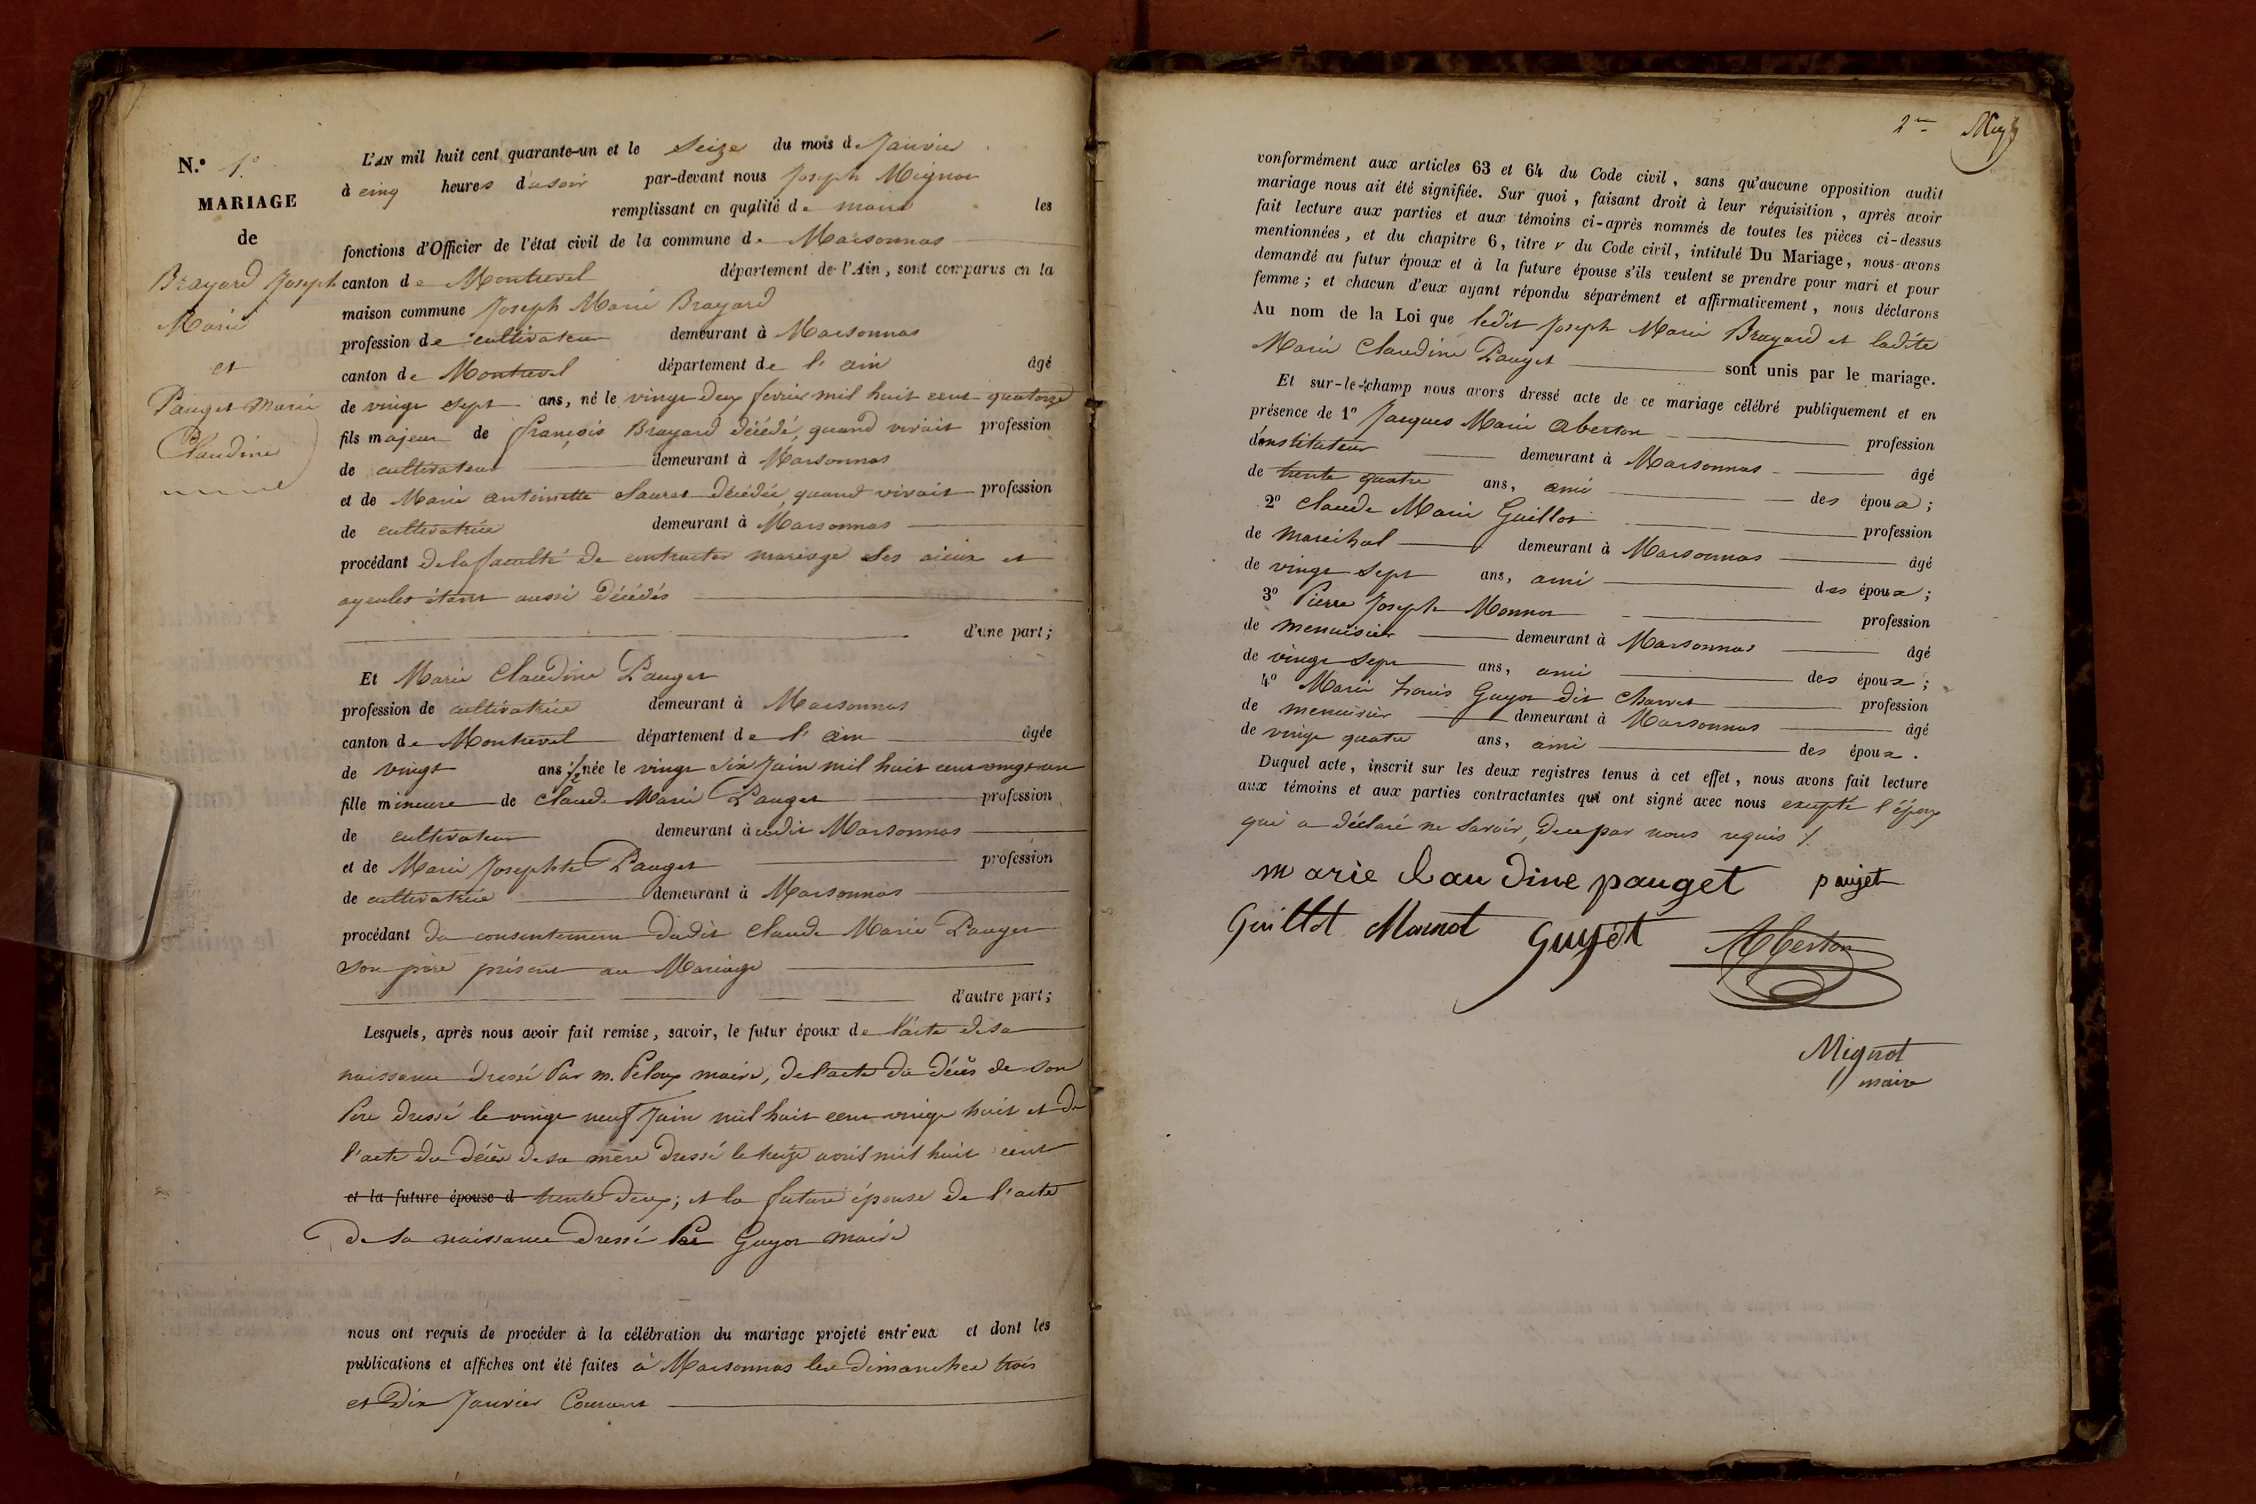 N.º 1º
MARIAGE
de
Brayard Joseph
Marie
et
Pauget Marie
Claudine
L'AN mil huit cent quarante-un et le Seize du mois de Janvier
à cinq heures du soir par-devant nous Joseph Mignot
remplissant en qualité de maire les
fonctions d'Officier de l'état civil de la commune de Marsonnas
canton de Montrevel département de l'Ain, sont comparus en la
maison commune Joseph Marie Brayard
profession de cultivateur demeurant à Marsonnas
canton de Montrevel département de l'ain âgé
de vingt sept ans, né le vingt deux fevrier mil huit cent quatorze
fils majeur de françois Brayard décédé, quand vivait profession
de cultivateur demeurant à Marsonnas
et de Marie antoinette Sauret décédée, quand vivait profession
de cultivatrice demeurant à Marsonnas
procédant de la faculté de contracter mariage ses aieux et
ayeules étant aussi décédés
d'une part;
Et Marie Claudine Pauget
profession de cultivatrice demeurant à Marsonnas
canton de Montrevel département de l'ain âgée
de vingt ans 1/2 née le vingt six Juin mil huit cent vingt un
fille mineure de Claude Marie Pauget profession
de cultivateur demeurant audit Marsonnas
et de Marie Josephte Pauget profession
de cultivatrice demeurant à Marsonnas
procédant du consentement dudit Claude Marie Pauget
son père présent au Mariage
d'autre part;
Lesquels, après nous avoir fait remise, savoir, le futur époux de l'acte de sa
naissance dressé Par m. Peloux maire, de l'acte du décès de son
Père dressé le vingt neuf Juin mil huit cent vingt huit et de
l'acte du décès de sa mère dressé le treize avril mil huit cent
et la future épouse d trente deux; et la future épouse de l'acte
de sa naissance dressé Par Guyot maire
nous ont requis de procéder à la célébration du mariage projeté entr'eux et dont les
publications et affiches ont été faites à Marsonnas les dimanches trois
et Dix Janvier Courant
2me
vonformément aux articles 63 et 64 du Code civil, sans qu'aucune opposition audit
mariage nous ait été signifiée. Sur quoi, faisant droit à leur réquisition, après avoir
fait lecture aux parties et aux témoins ci-après nommés de toutes les pièces ci-dessus
mentionnées, et du chapitre 6, titre v du Code civil, intitulé Du Mariage, nous avons
demandé au futur époux et à la future épouse s'ils veulent se prendre pour mari et pour
femme; et chacun d'eux ayant répondu séparément et affirmativement, nous déclarons
Au nom de la Loi que ledit Joseph Marie Brayard et ladite
Marie Claudine Pauget sont unis par le mariage.
Et sur-le-champ nous avons dressé acte de ce mariage célébré publiquement et en
présence de 1º Jacques Marie Aberton profession
d'instituteur demeurant à Marsonnas âgé
de trente quatre ans, ami des époux;
2º Claude Marie Guillot profession
de maréchal demeurant à Marsonnas âgé
de vingt sept ans, ami des époux;
3º Pierre Joseph Monnot profession
de menuisier demeurant à Marsonnas âgé
de vingt sept ans, ami des époux;
4º Marie Louis Guyot dit Charret profession
de menuisier demeurant à Marsonnas âgé
de vingt quatre ans, ami des époux.
Duquel acte, inscrit sur les deux registres tenus à cet effet, nous avons fait lecture
aux témoins et aux parties contractantes qui ont signé avec nous excepté l'époux
qui a déclaré ne savoir, de ce par nous requis ./.
marie Claudine pauget pauget
Guillot Monnot Guyot Aberton
Mignot
maire